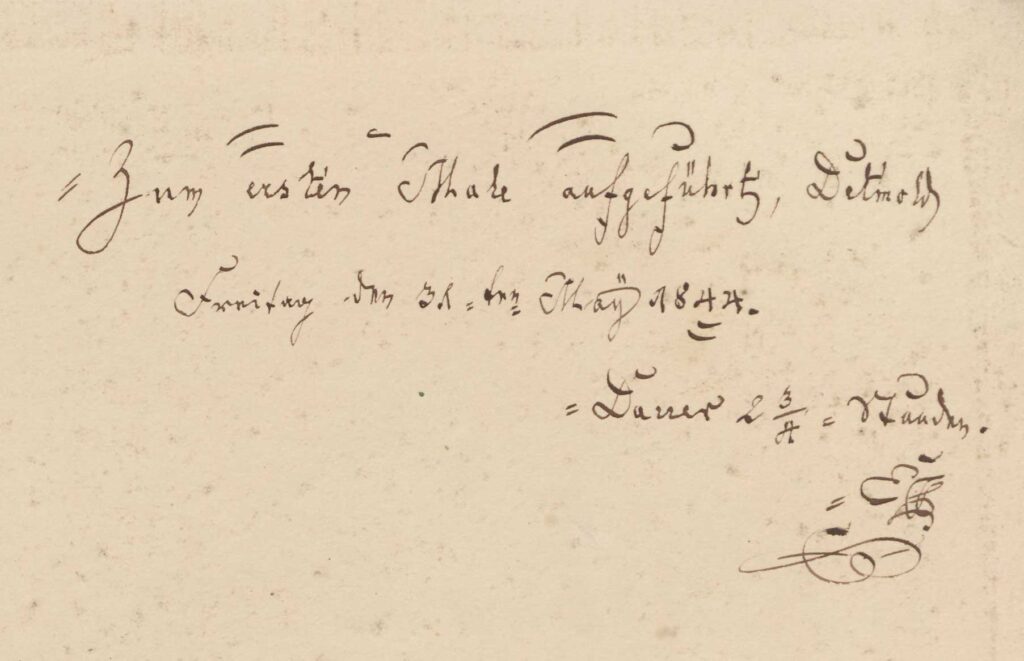 = Zum ersten Male aufgeführt, Detmold
Freitag den 31=ten Maÿ 1844.
= Dauer 2 3/4 = Stunden.